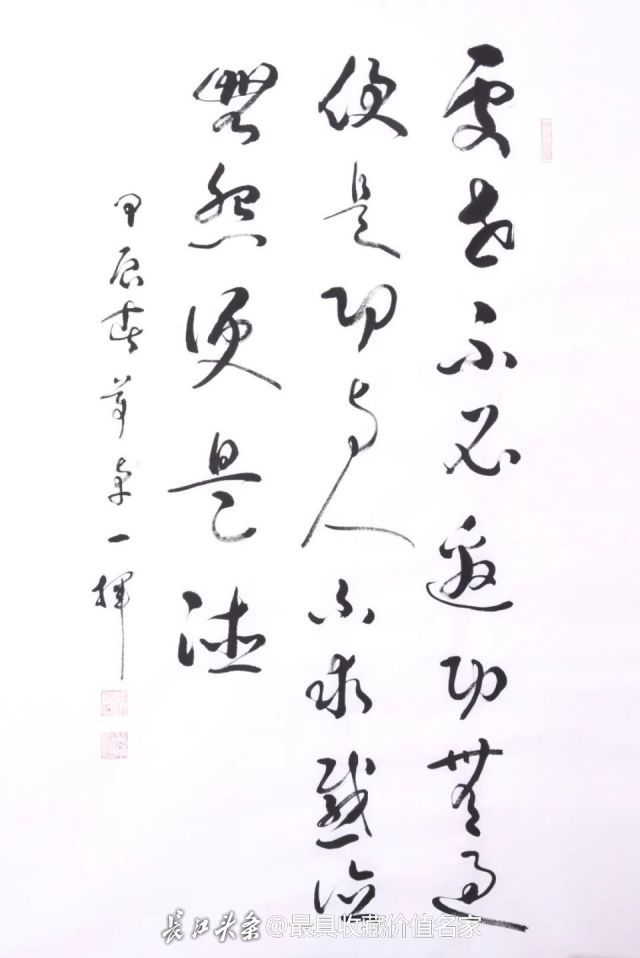 處世不必邀功無過
便是功與人不求感德
無怨便是德
甲辰春草堂一揮
长江头条@最具收藏价值名家